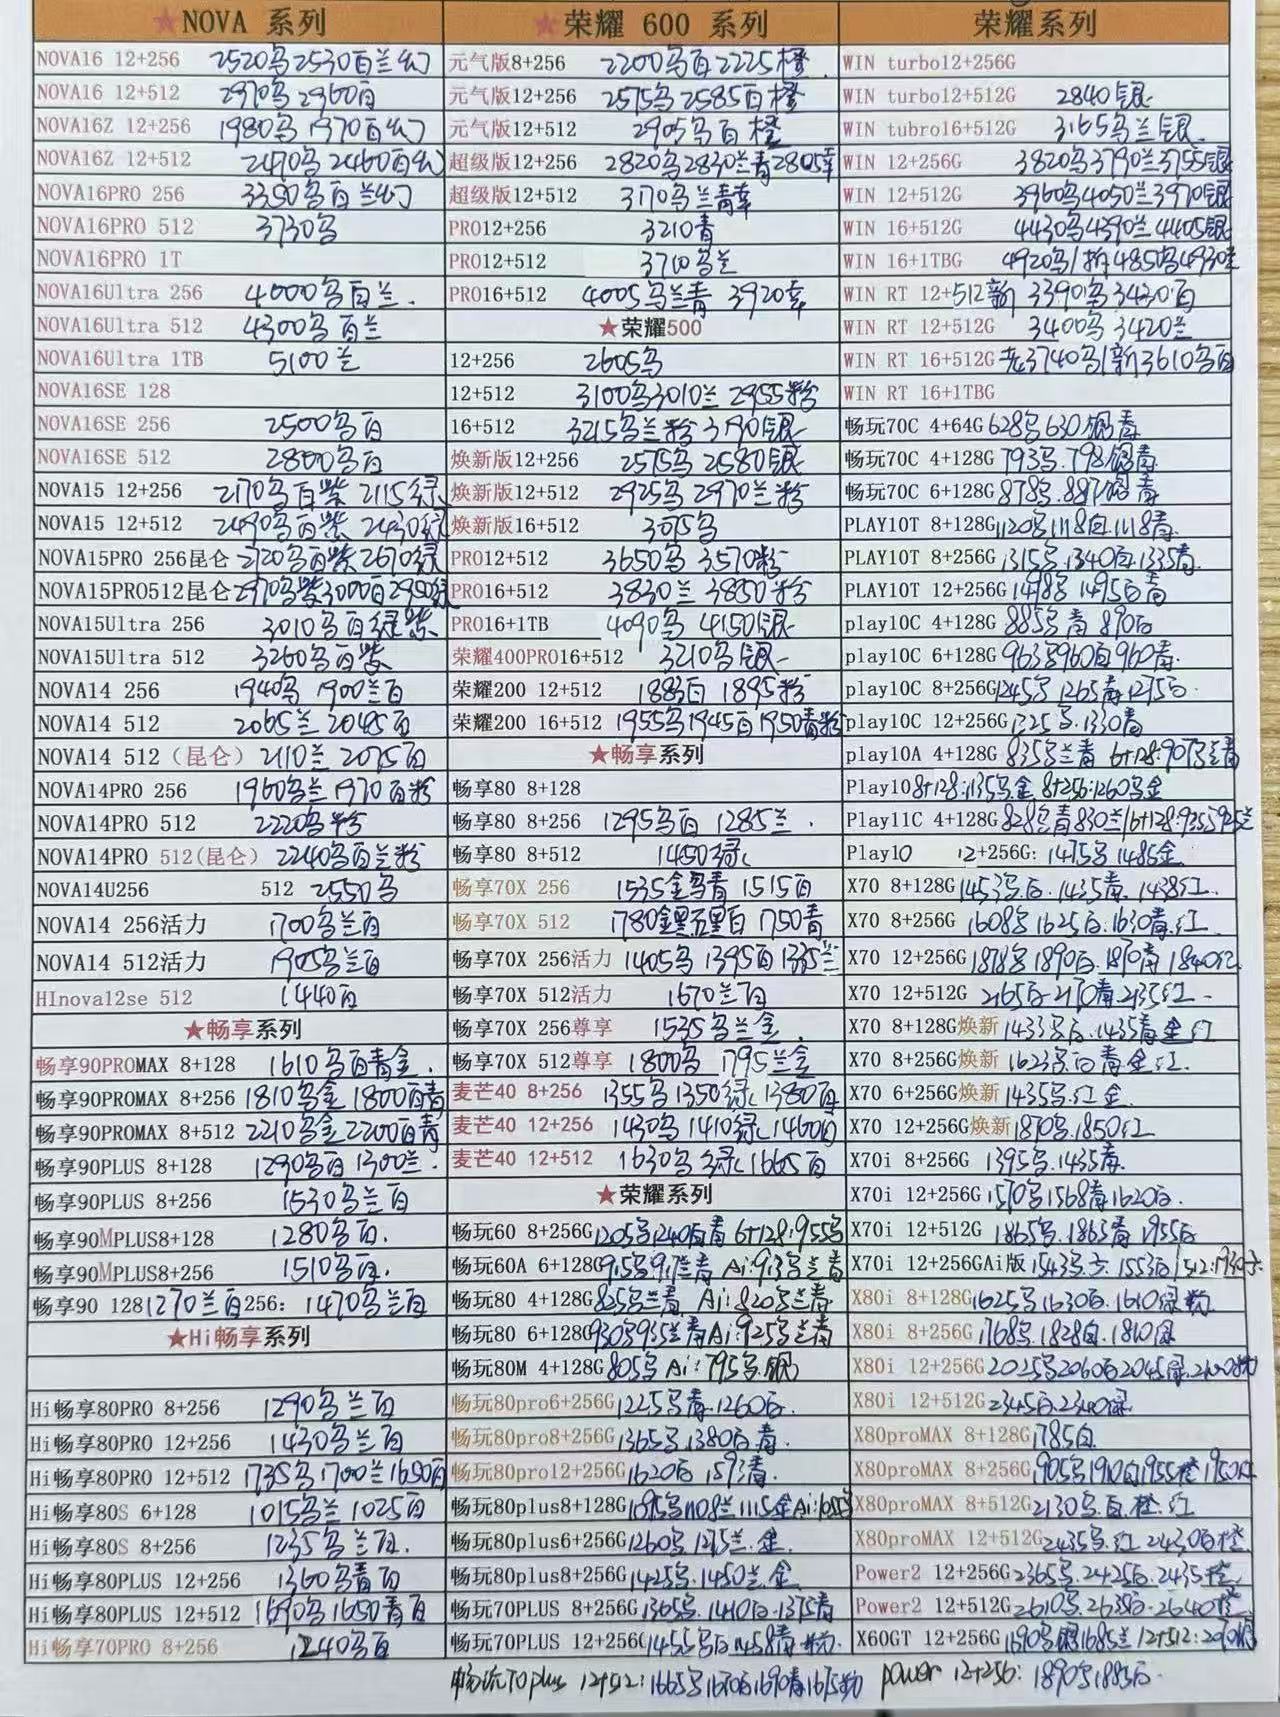 ★NOVA 系列
NOVA16 12+256 2520乌2530百兰幻
NOVA16 12+512 2970乌2960百
NOVA16Z 12+256 1980乌1970百幻
NOVA16Z 12+512 2470乌2460百幻
NOVA16PRO 256 3350乌百兰幻
NOVA16PRO 512 3730乌
NOVA16PRO 1T
NOVA16Ultra 256 4000乌百兰.
NOVA16Ultra 512 4300乌百兰
NOVA16Ultra 1TB 5100兰
NOVA16SE 128
NOVA16SE 256 2500乌百
NOVA16SE 512 2800乌百
NOVA15 12+256 2170乌百紫 2115绿
NOVA15 12+512 2490乌百紫 2430绿
NOVA15PRO 256昆仑 2720乌百紫2670绿
NOVA15PRO512昆仑 2970乌紫3000百2950绿
NOVA15Ultra 256 3010乌百绿紫
NOVA15Ultra 512 3260乌百紫
NOVA14 256 1940乌 1900兰百
NOVA14 512 2065兰 2045百
NOVA14 512（昆仑） 2110兰 2075百
NOVA14PRO 256 1960乌兰1970百粉
NOVA14PRO 512 2220乌粉
NOVA14PRO 512(昆仑） 2240乌百兰粉
NOVA14U256 512 2550乌
NOVA14 256活力 1700乌兰百
NOVA14 512活力 1905乌兰百
HInova12se 512 1440百
★畅享系列
畅享90PROMAX 8+128 1610乌百青金.
畅享90PROMAX 8+256 1810乌金 1800百青
畅享90PROMAX 8+512 2210乌金2200百青
畅享90PLUS 8+128 1290乌百1300兰.
畅享90PLUS 8+256 1530乌兰百
畅享90MPLUS8+128 1280乌百.
畅享90MPLUS8+256 1510乌百.
畅享90 128 1270兰百256: 1470乌兰百
★Hi畅享系列
Hi畅享80PRO 8+256 1290乌兰百
Hi畅享80PRO 12+256 1430乌兰百
Hi畅享80PRO 12+512 1735乌1700兰1650百
Hi畅享80S 6+128 1015乌兰 1025百
Hi畅享80S 8+256 1235乌兰百.
Hi畅享80PLUS 12+256 1360乌青百
Hi畅享80PLUS 12+512 1690乌1650青百
Hi畅享70PRO 8+256 1240乌百
★荣耀 600 系列
元气版8+256 2200乌百2225橙.
元气版12+256 2575乌2585百橙
元气版12+512 2905乌百橙
超级版12+256 2820乌2830兰青2805幸
超级版12+512 3170乌兰青幸
PRO12+256 3210青
PRO12+512 3710乌兰
PRO16+512 4005乌兰青 3920幸
★荣耀500
12+256 2605乌
12+512 3100乌3010兰 2955粉
16+512 3215乌兰粉 3190银
焕新版12+256 2575乌 2580银
焕新版12+512 2925乌 2970兰粉
焕新版16+512 3075乌
PRO12+512 3650乌 3570粉
PRO16+512 3830兰 3850粉
PRO16+1TB 4090乌 4150银
荣耀400PRO16+512 3210乌银
荣耀200 12+512 1883百 1895粉
荣耀200 16+512 1955乌1945百1950青粉
★畅享系列
畅享80 8+128
畅享80 8+256 1295乌百 1285兰.
畅享80 8+512 1450绿
畅享70X 256 1535金乌青 1515百
畅享70X 512 1780金黑百 1750青
畅享70X 256活力 1405乌1395百1335兰
畅享70X 512活力 1670兰百
畅享70X 256尊享 1535乌兰金
畅享70X 512尊享 1800乌 1795兰金
麦芒40 8+256 1355乌1350绿1380百
麦芒40 12+256 1430乌1410绿1460百
麦芒40 12+512 1630乌绿1665百
★荣耀系列
畅玩60 8+256G 1205乌1240百青 6+128:955乌
畅玩60A 6+128G 915乌917兰青 Ai:913乌兰青
畅玩80 4+128G 825乌兰青 Ai:820乌兰青
畅玩80 6+128G 930乌935兰青Ai:925乌兰青
畅玩80M 4+128G 805乌 Ai:795乌.银
畅玩80pro6+256G 1225乌青.1260百.
畅玩80pro8+256G 1365乌.1380百.青.
畅玩80pro12+256G 1620百 1593青.
畅玩80plus8+128G 1095乌1108兰1115金
畅玩80plus6+256G 1260乌.1275兰.金.
畅玩80plus8+256G 1425乌.1450兰.金
畅玩70PLUS 8+256G 1365乌.1410百.1375青
畅玩70PLUS 12+256G 1455乌百1458青粉.
畅玩70plus 12+512:1665乌1670百1690青1675粉
荣耀系列
WIN turbo12+256G
WIN turbo12+512G 2840银
WIN tubro16+512G 3165乌兰银.
WIN 12+256G 3820乌3790兰3755银
WIN 12+512G 3960乌4050兰3970银
WIN 16+512G 4430乌4390兰4405银
WIN 16+1TBG 4920乌/拆4850乌4930兰
WIN RT 12+512新 3390乌3430百
WIN RT 12+512G 3400乌 3420兰
WIN RT 16+512G 老3740乌/新3610乌百
WIN RT 16+1TBG
畅玩70C 4+64G 628乌630银青
畅玩70C 4+128G 793乌.798银青
畅玩70C 6+128G 878乌.887银青
PLAY10T 8+128G 1120乌.1118百.1118青
PLAY10T 8+256G 1315乌.1340百.1335青.
PLAY10T 12+256G 1498乌 1495百青
play10C 4+128G 885乌青 890百
play10C 6+128G 963乌960百960青.
play10C 8+256G 1245乌 1265青1275百.
play10C 12+256G 1325乌.1330青
play10A 4+128G 835乌兰青 6+128:907乌兰青
Play10 8+128:1135乌金 8+256:1260乌金
Play11C 4+128G 828乌青830兰/6+128:935乌925兰
Play10 12+256G: 1475乌1485金
X70 8+128G 1453乌百.1435青.1438红.
X70 8+256G 1608乌1625百.1630青.红.
X70 12+256G 1878乌1890百.1870青1840红
X70 12+512G 2165百.2170青.2135红.
X70 8+128G焕新 1433乌百.1435青金红
X70 8+256G焕新 1623乌百青金红.
X70 6+256G焕新 1435乌.红金.
X70 12+256G焕新 1870乌.1850红
X70i 8+256G 1395乌.1435青.
X70i 12+256G 1570乌1568青1620百.
X70i 12+512G 1865乌.1863青 1955百
X70i 12+256GAi版 1543乌 1553百/512:1930
X80i 8+128G 1625乌1630百.1610绿粉
X80i 8+256G 1768乌.1828百.1810绿
X80i 12+256G 2025乌2060百2045绿
X80i 12+512G 2345百.2340绿
X80proMAX 8+128G 1785百
X80proMAX 8+256G 1905乌1910百1955橙1950红
X80proMAX 8+512G 2130乌.百.橙.红
X80proMAX 12+512G 2435乌.红 2430百橙.
Power2 12+256G 2365乌.2425百.2435橙
Power2 12+512G 2610乌.2638百.2640橙
X60GT 12+256G 1690乌银1685兰 12+512:2090银
power 12+256: 1890乌1885百.